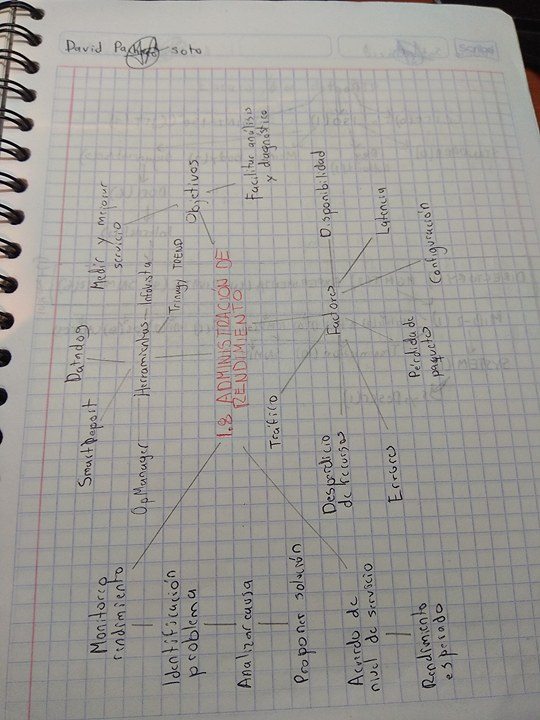 David Pacheco soto
1.8 ADMINISTRACIÓN DE
RENDIMIENTO
Objetivos
Medir y mejorar
servicio
Facilitar análisis
y diagnóstico
Herramientas
Infovista
TREND
Datadog
SmartDeposit
OpManager
Factores
Disponibilidad
Latencia
Configuración
Pérdida de
paquetes
Errores
Desperdicio
de recursos
Tráfico
Monitoreo
rendimiento
Identificación
problema
Analizar causa
Proponer solución
Acuerdo de
nivel de servicio
Rendimiento
esperado